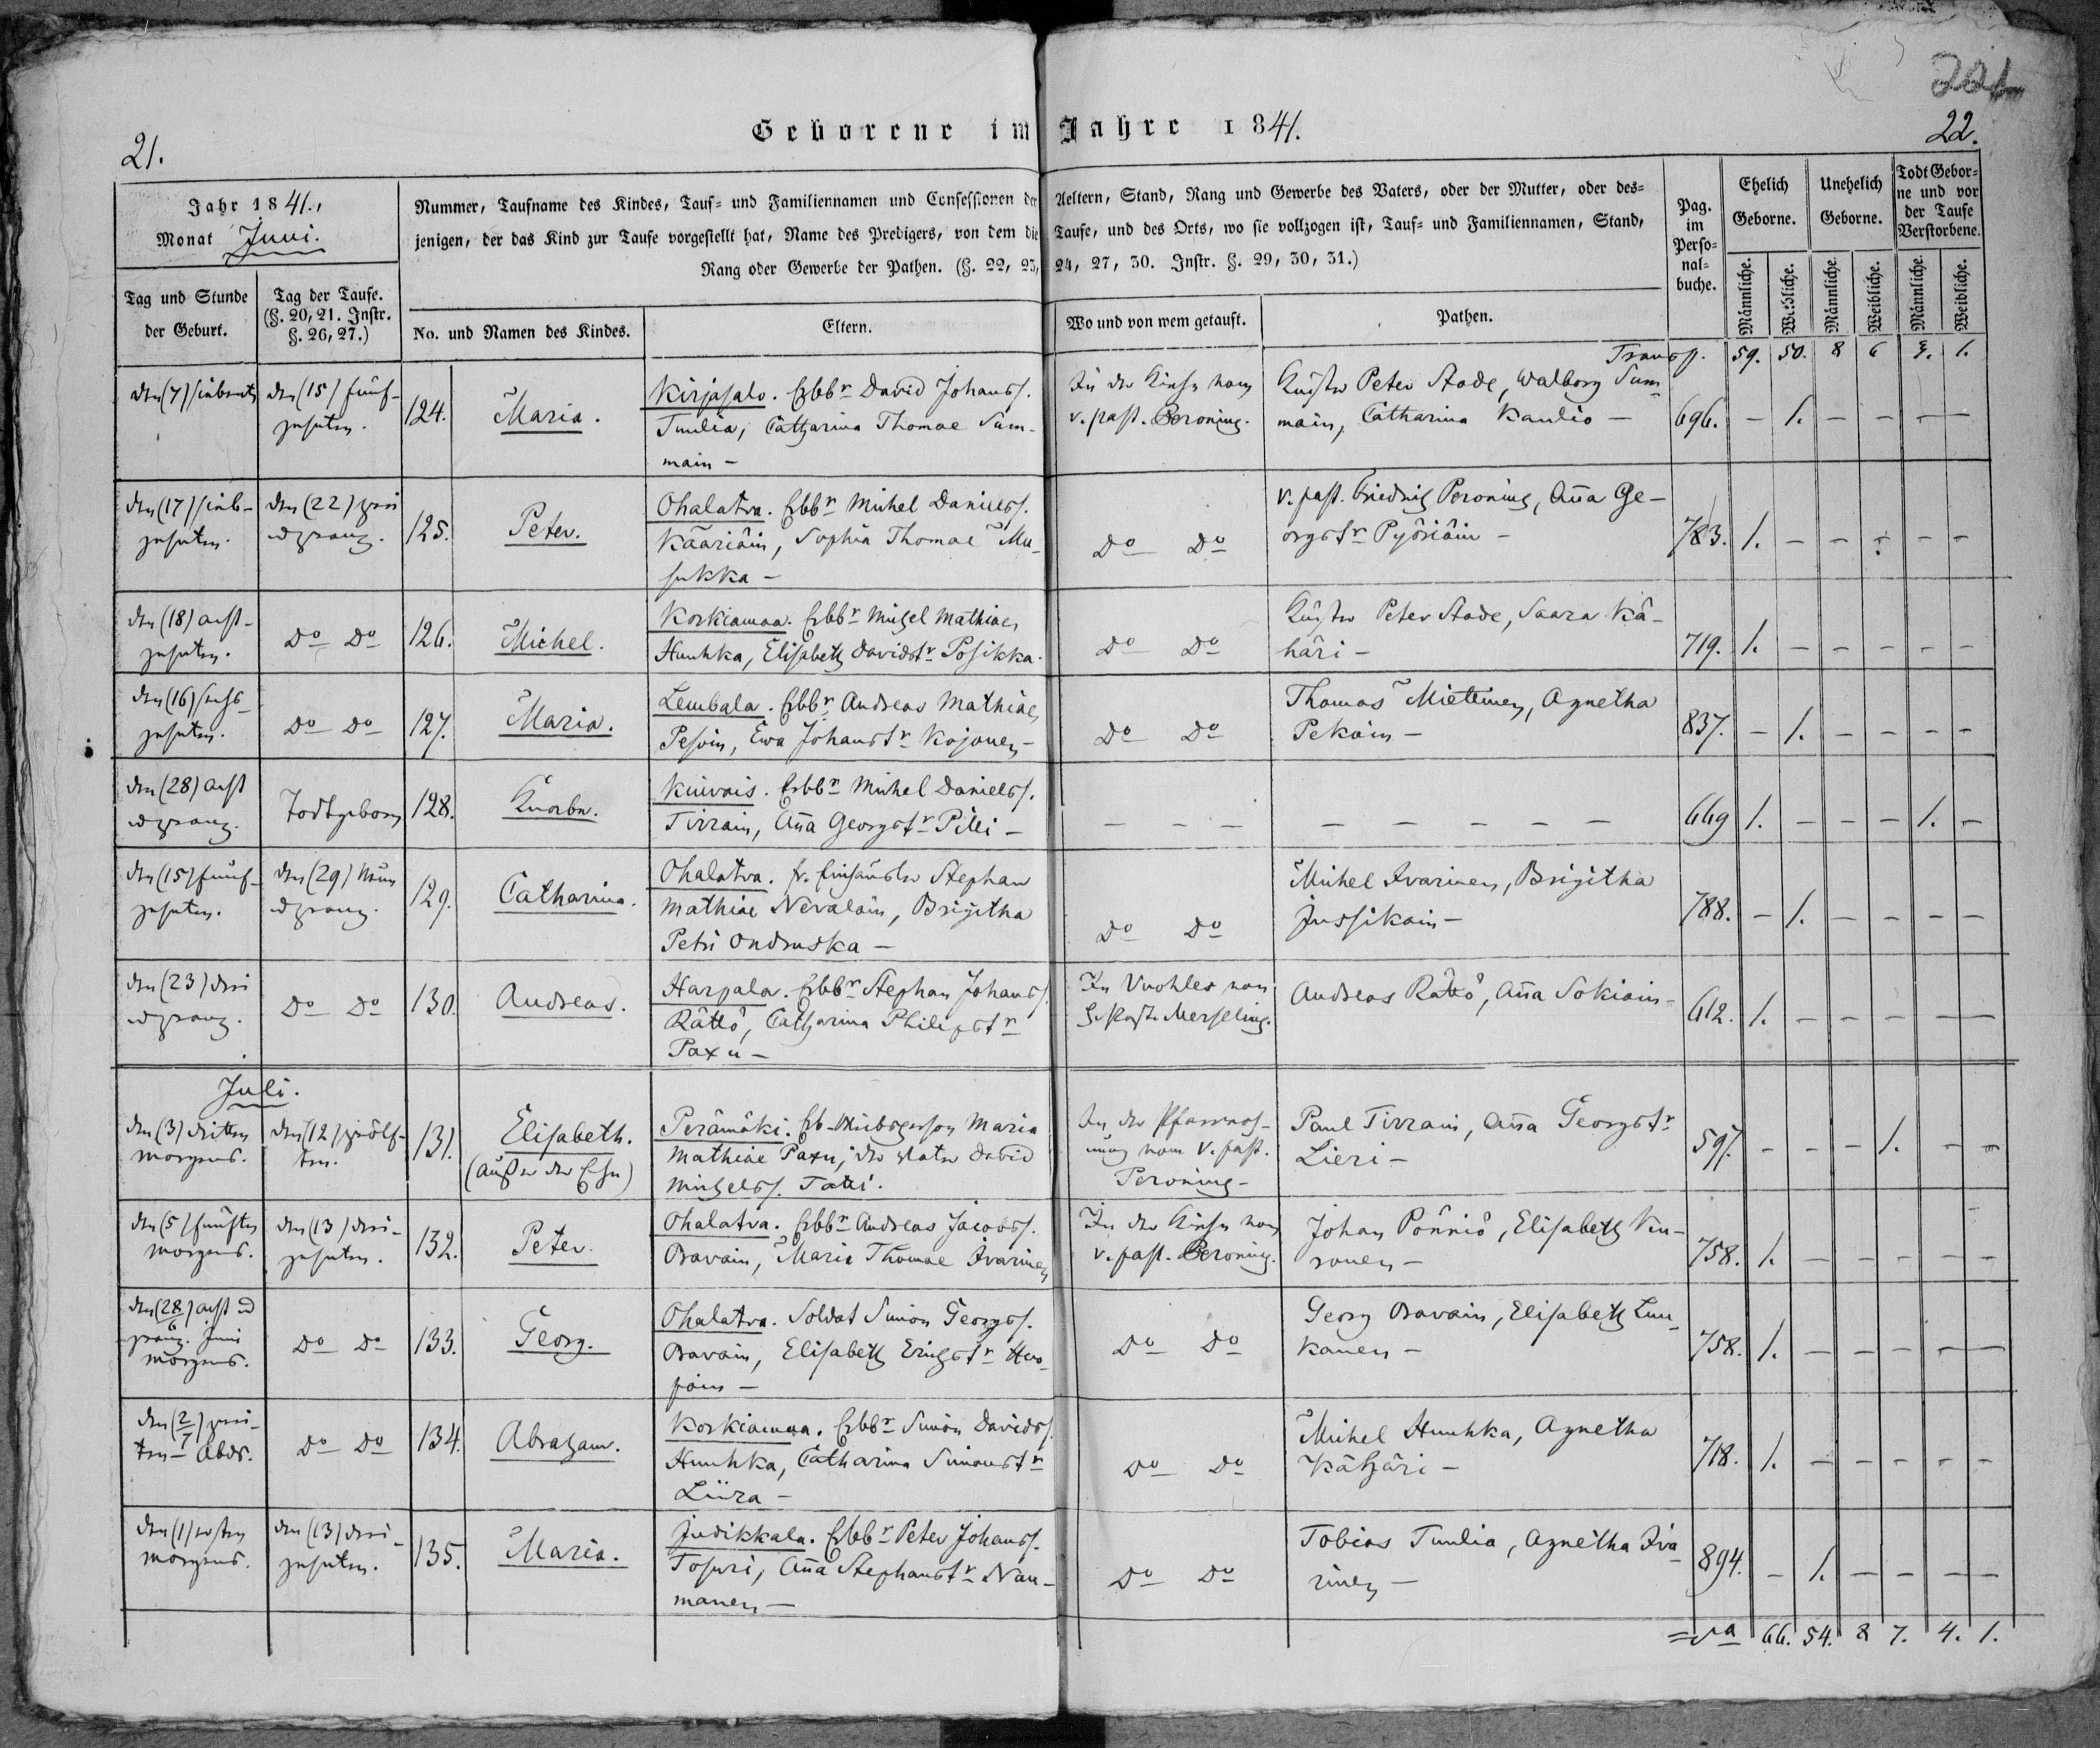 221
21.
Geborene im Jahre 1841.
22.
Jahr 1841.,
Monat Juni.
Nummer, Taufname des Kindes, Tauf= und Familiennamen und Confessionen der Aeltern, Stand, Rang und Gewerbe des Vaters, oder der Mutter, oder des=
jenigen, der das Kind zur Taufe vorgestellt hat, Name des Predigers, von dem die Taufe, und des Orts, wo sie vollzogen ist, Tauf= und Familiennamen, Stand,
Rang oder Gewerbe der Pathen. (§. 22, 23, 24, 27, 30. Instr. §. 29, 30, 31.)
Pag.
im
Perso=
nal=
buche.
Ehelich
Geborne.
Unehelich
Geborne.
Todt Gebor=
ne und vor
der Taufe
Verstorbene.
Tag und Stunde
der Geburt.
Tag der Taufe.
(§. 20, 21. Instr.
§. 26, 27.)
No. und Namen des Kindes.
Eltern.
Wo und von wem getauft.
Pathen.
Männliche.
Weibliche.
Männliche.
Weibliche.
Männliche.
Weibliche.
Transp. 59. 50. 8 6 3. 1.
den (7) siebenten
den (15) fünf-
zehnten.
124.
Maria.
Kirjasalo. Erbbr David Johanss.
Tuulia, Catharina Thomae Sum-
main –
In der Kirche vom
v. past. Peroning.
Küster Peter Stade, Walborg Sum-
main, Catharina Kaulio –
696. – 1. – – – –
den (17) sieb-
zehnten.
den (22) zwei
u zwanz.
125.
Peter.
Ohalatva. Erbbr Michel Daniels.
Kääriäin, Sophia Thomae Mu-
sukka –
Do Do
v. past. Friedrich Peroning, Aña Ge-
orgstr Pyöriäin –
783. 1. – – – – –
den (18) acht-
zehnten.
Do Do
126.
Michel.
Korkiamaa. Erbbr Michel Mathiae
Huuhka, Elisabeth Davidstr Posikka.
Do Do
Küster Peter Stade, Saara Kä-
häri –
719. 1. – – – – –
den (16) sechs-
zehnten.
Do Do
127.
Maria.
Lembala. Erbbr Andreas Mathiae
Pesoin, Ewa Johanstr Kojonen –
Do Do
Thomas Miettinen, Agnetha
Pekoin –
837. – 1. – – – –
den (28) acht
u zwanz.
Todtgeboren
128.
Knabe.
Kuivais. Erbbr Michel Daniels.
Tirrain, Aña Georgstr Pilli –
– – – – – – – – –
669 1. – – – 1. –
den (15) fünf-
zehnten.
den (29) neun
u zwanz.
129.
Catharina.
Ohalatva. Stephan
Mathiae Nevalain, Brigitha
Petri Ondruska –
Do Do
Michel Ivarinen, Brigitha
Jussikain –
788. – 1. – – – –
den (23) drei
u zwanz.
Do Do
130.
Andreas.
Harpala. Erbbr Stephan Johanss.
Rättö, Catharina Philipstr
Paxu –
In Vuohles von
Merseling.
Andreas Rättö, Aña Sokiain –
612. 1. – – – – –
Juli.
den (3) dritten
morgens.
den (12) zwölf-
ten.
131.
Elisabeth.
(außer der Ehe)
Perämäki. Maria
Mathiae Paxu, der Vater David
Michelss. Tatti.
In der Pfarrwoh-
nung vom v. past.
Peroning –
Paul Tirrain, Aña Georgstr
Lieri –
597. – – – 1. – –
den (5) fünften
morgens.
den (13) drei-
zehnten.
132.
Peter.
Ohalatva. Erbbr Andreas Jacobss.
Bavain, Maria Thomae Ivarinen
In der Kirche vom
v. past. Peroning.
Johan Pönniö, Elisabeth Ku-
ronen –
758. 1. – – – – –
den (28/6) acht u
zwanz. Juni
morgens.
Do Do
133.
Georg.
Ohalatva. Soldat Simon Georgs.
Bavain, Elisabeth Erichstr Huo-
pain –
Do Do
Georg Bavain, Elisabeth Luu-
kanen –
758. 1. – – – – –
den (2/7) zwei-
ten Abds.
Do Do
134.
Abraham.
Korkiamaa. Erbbr Simon Davids.
Huuhka, Catharina Simonstr
Liira –
Do Do
Michel Huuhka, Agnetha
Kähäri –
718. 1. – – – – –
den (1) ersten
morgens.
den (13) drei-
zehnten.
135.
Maria.
Judikkala. Erbbr Peter Johanss.
Tohuri, Aña Stephanstr Nau-
manen –
Do Do
Tobias Tuulia, Agnetha Iva-
rinen –
894. – 1. – – – –
66. 54. 8 7. 4. 1.